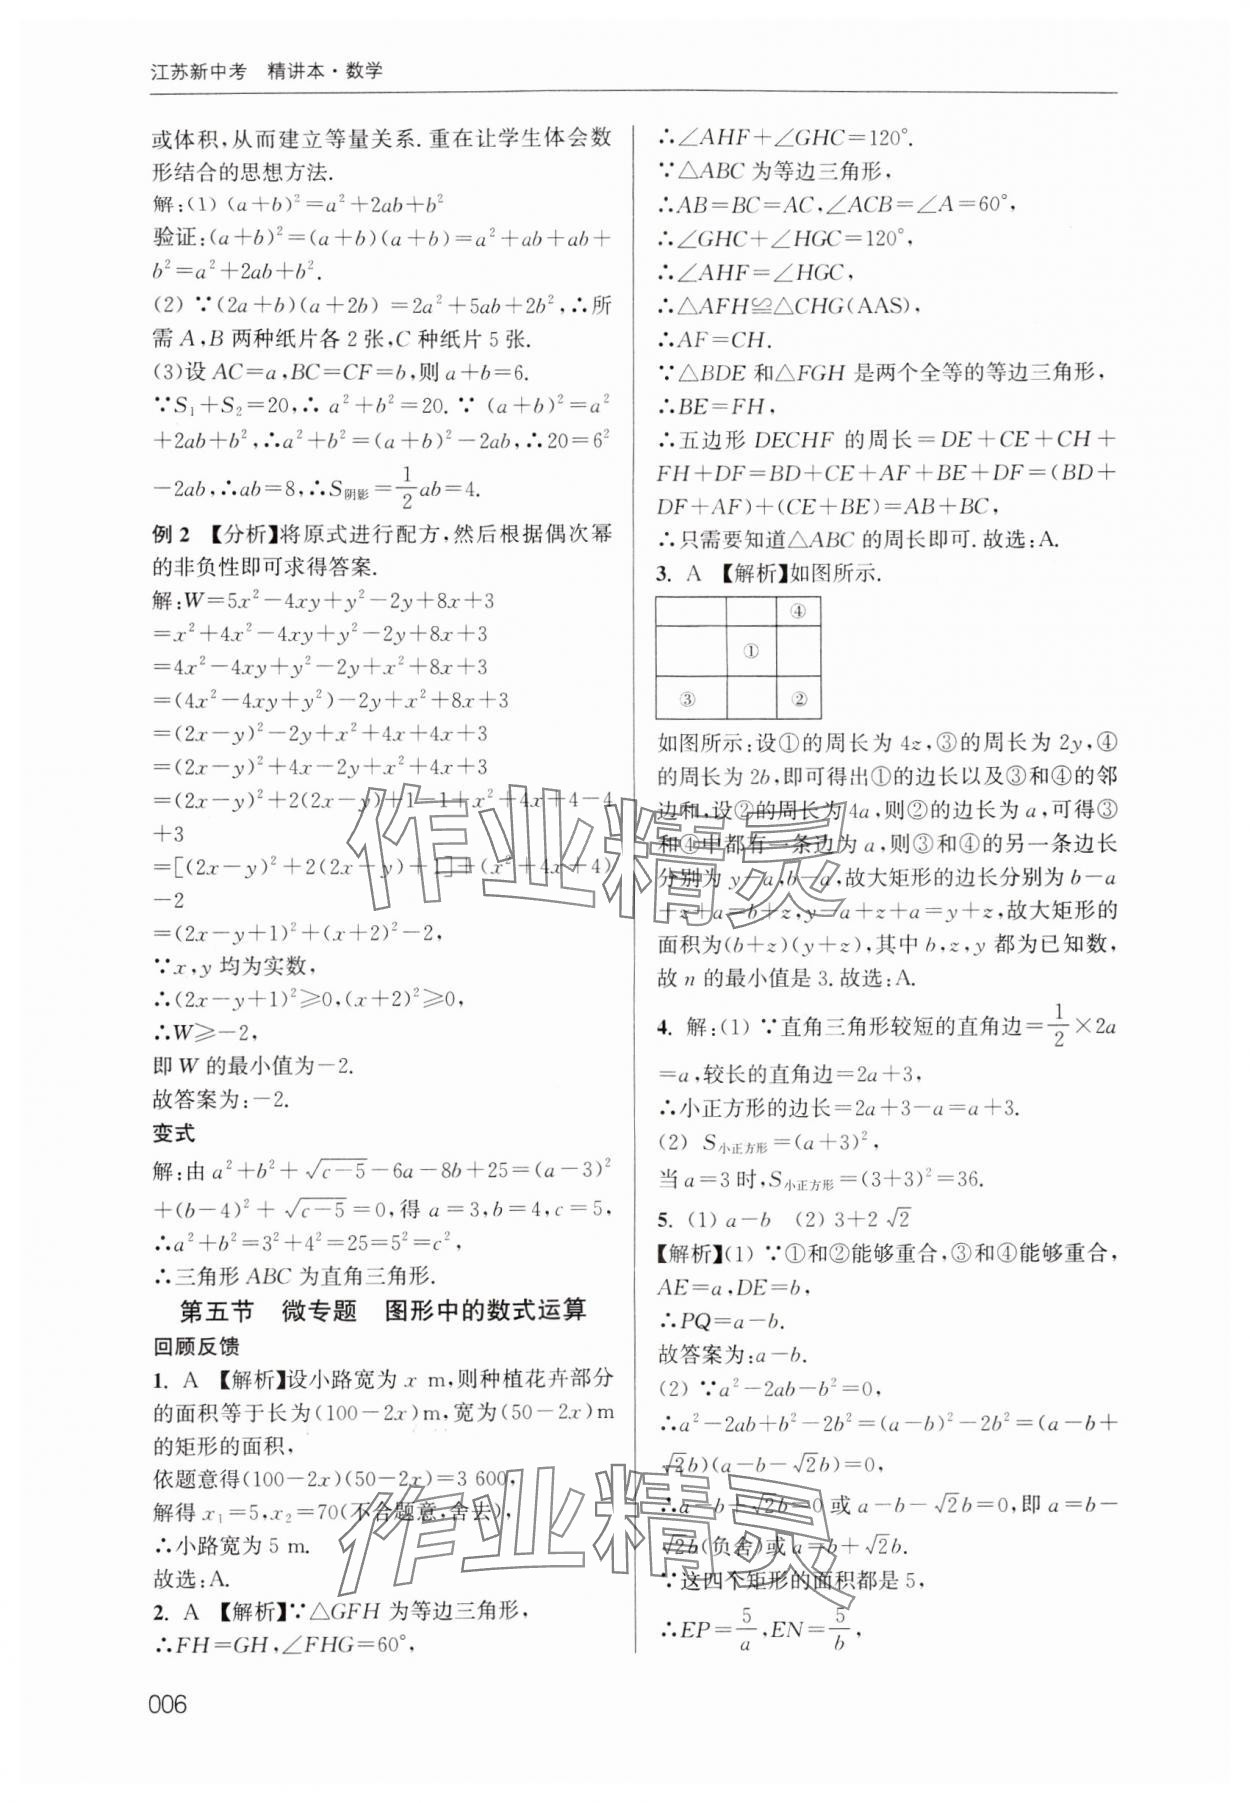 江苏新中考　精讲本·数学
或体积,从而建立等量关系.重在让学生体会数
形结合的思想方法.
解:(1) (a+b)²=a²+2ab+b²
验证:(a+b)²=(a+b)(a+b)=a²+ab+ab+
b²=a²+2ab+b².
(2) ∵(2a+b)(a+2b)=2a²+5ab+2b²,∴所
需A,B两种纸片各2张,C种纸片5张.
(3)设AC=a,BC=CF=b,则a+b=6.
∵S₁+S₂=20,∴a²+b²=20.∵(a+b)²=a²
+2ab+b²,∴a²+b²=(a+b)²-2ab,∴20=6²
-2ab,∴ab=8,∴S阴影=1/2ab=4.
例2 【分析】将原式进行配方,然后根据偶次幂
的非负性即可求得答案.
解:W=5x²-4xy+y²-2y+8x+3
=x²+4x²-4xy+y²-2y+8x+3
=4x²-4xy+y²-2y+x²+8x+3
=(4x²-4xy+y²)-2y+x²+8x+3
=(2x-y)²-2y+x²+4x+4x+3
=(2x-y)²+4x-2y+x²+4x+3
=(2x-y)²+2(2x-y)+1-1+x²+4x+4-4
+3
=[(2x-y)²+2(2x-y)+1]+(x²+4x+4)
-2
=(2x-y+1)²+(x+2)²-2,
∵x,y均为实数,
∴(2x-y+1)²≥0,(x+2)²≥0,
∴W≥-2,
即W的最小值为-2.
故答案为:-2.
变式
解:由a²+b²+√(c-5)-6a-8b+25=(a-3)²
+(b-4)²+√(c-5)=0,得a=3,b=4,c=5,
∴a²+b²=3²+4²=25=5²=c²,
∴三角形ABC为直角三角形.
第五节　微专题　图形中的数式运算
回顾反馈
1. A 【解析】设小路宽为x m,则种植花卉部分
的面积等于长为(100-2x)m,宽为(50-2x)m
的矩形的面积,
依题意得(100-2x)(50-2x)=3 600,
解得x₁=5,x₂=70(不合题意,舍去),
∴小路宽为5 m.
故选:A.
2. A 【解析】∵△GFH为等边三角形,
∴FH=GH,∠FHG=60°,
∴∠AHF+∠GHC=120°.
∵△ABC为等边三角形,
∴AB=BC=AC,∠ACB=∠A=60°,
∴∠GHC+∠HGC=120°,
∴∠AHF=∠HGC,
∴△AFH≌△CHG(AAS),
∴AF=CH.
∵△BDE和△FGH是两个全等的等边三角形,
∴BE=FH,
∴五边形DECHF的周长=DE+CE+CH+
FH+DF=BD+CE+AF+BE+DF=(BD+
DF+AF)+(CE+BE)=AB+BC,
∴只需要知道△ABC的周长即可.故选:A.
3. A 【解析】如图所示.
④
①
③　②
如图所示:设①的周长为4z,③的周长为2y,④
的周长为2b,即可得出①的边长以及③和④的邻
边和,设②的周长为4a,则②的边长为a,可得③
和④中都有一条边为a,则③和④的另一条边长
分别为y-a,b-a,故大矩形的边长分别为b-a
+z+a=b+z,y-a+z+a=y+z,故大矩形的
面积为(b+z)(y+z),其中b,z,y都为已知数,
故n的最小值是3.故选:A.
4. 解:(1) ∵直角三角形较短的直角边=1/2×2a
=a,较长的直角边=2a+3,
∴小正方形的边长=2a+3-a=a+3.
(2) S小正方形=(a+3)²,
当a=3时,S小正方形=(3+3)²=36.
5. (1) a-b　(2) 3+2√2
【解析】(1) ∵①和②能够重合,③和④能够重合,
AE=a,DE=b,
∴PQ=a-b.
故答案为:a-b.
(2) ∵a²-2ab-b²=0,
∴a²-2ab+b²-2b²=(a-b)²-2b²=(a-b+
√2b)(a-b-√2b)=0,
∴a-b+√2b=0或a-b-√2b=0,即a=b-
√2b(负舍)或a=b+√2b.
∵这四个矩形的面积都是5,
∴EP=5/a,EN=5/b,
006
作业精灵
作业精灵